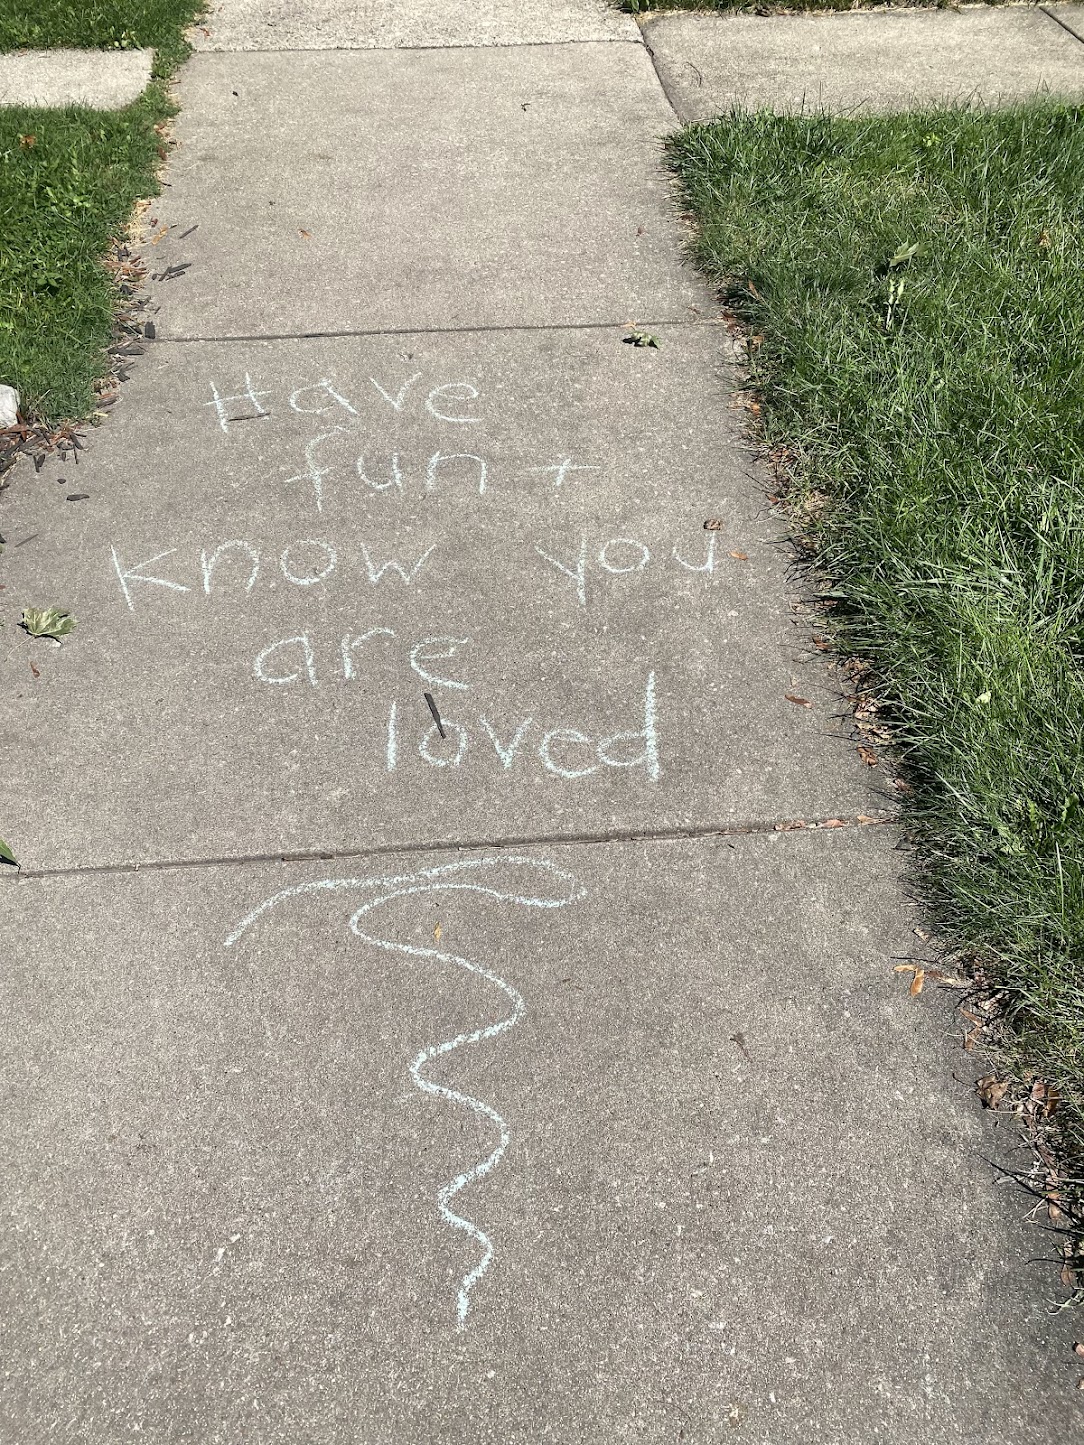 Have
fun +
know you
are
loved